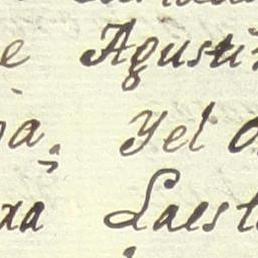 e Agusti
a; Yel
xa Laest